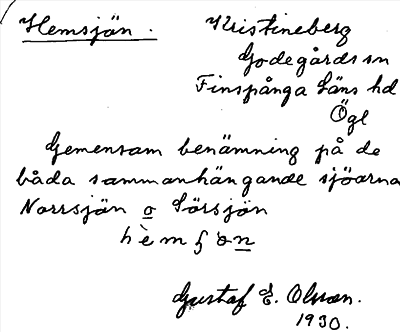 Hemsjön. Kristineberg
Godegårds sn
Finspånga Läns hd
Ögl
Gemensam benämning på de
båda sammanhängande sjöarna
Norrsjön o Sörsjön
Gustaf E. Olsson.
1930.